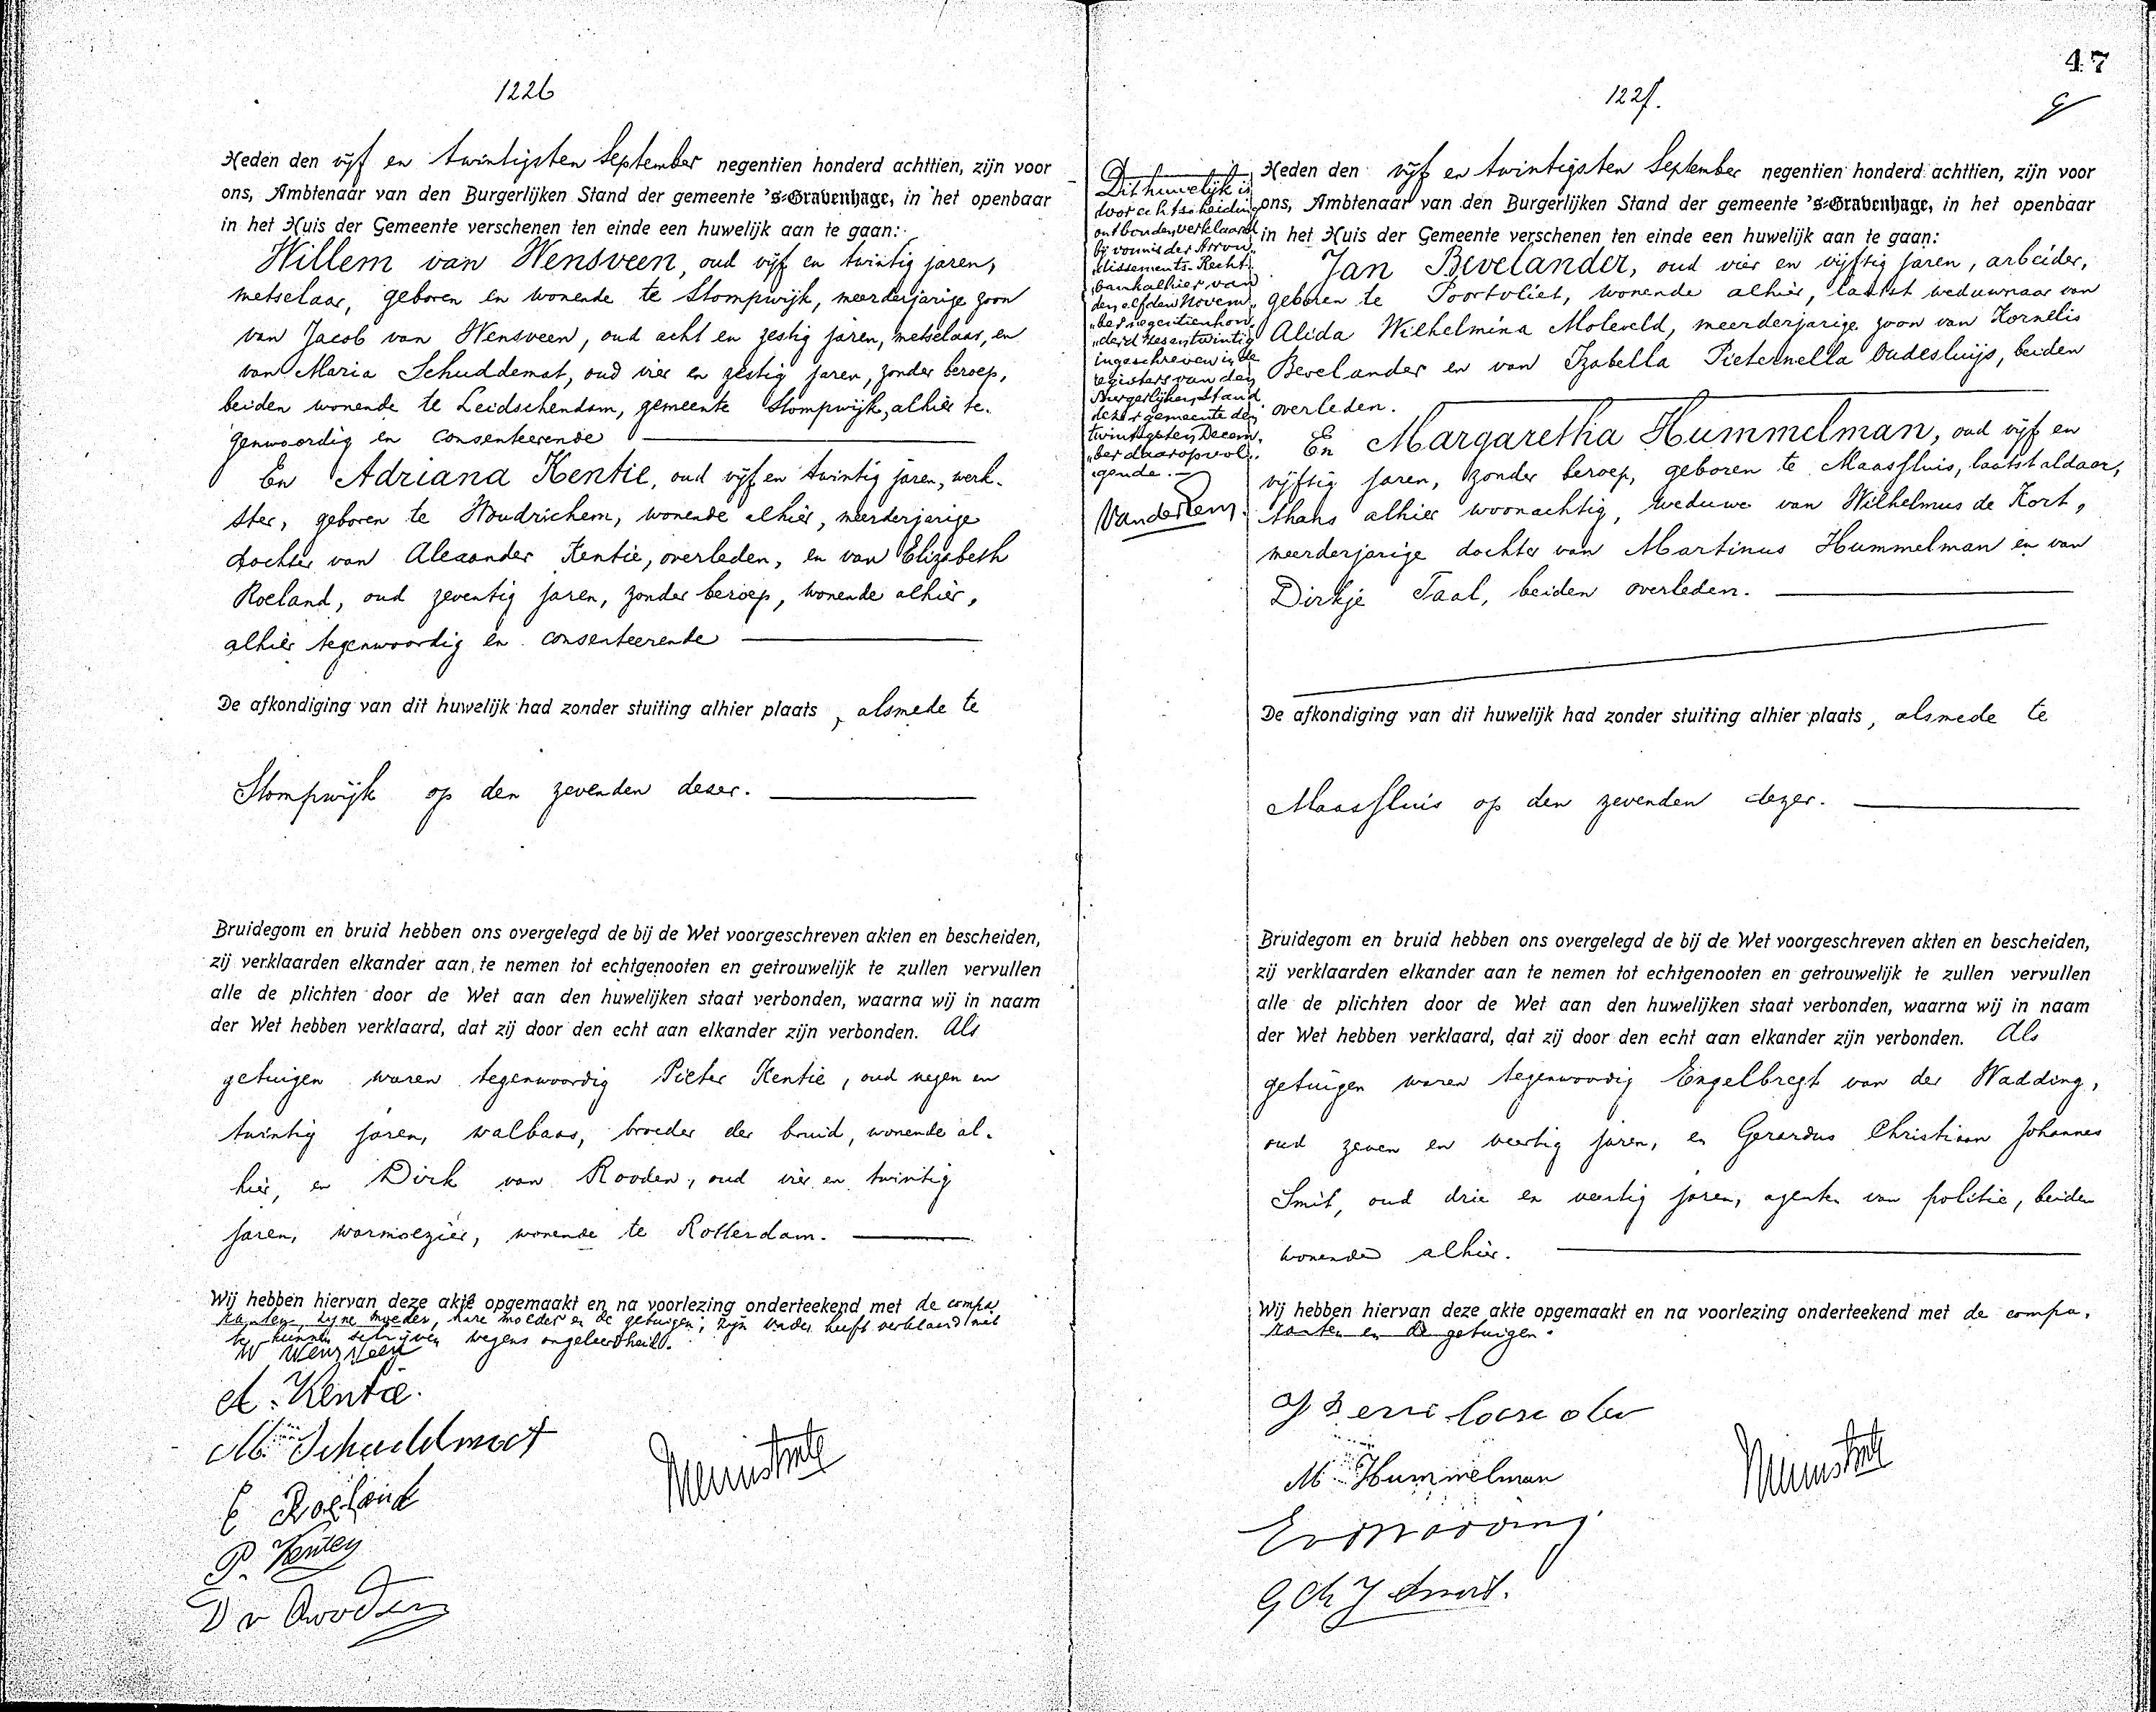 1226
Heden den vijf en twintigsten September negentien honderd achttien, zijn voor
ons, Ambtenaar van den Burgerlijken Stand der gemeente 's-Gravenhage, in het openbaar
in het Huis der Gemeente verschenen ten einde een huwelijk aan te gaan:
Willem van Wensveen, oud vijf en twintig jaren,
metselaar, geboren en wonende te Stompwijk, meerderjarige zoon
van Jacob van Wensveen, oud acht en zestig jaren, metselaar, en
van Maria Schuddemat, oud vier en zestig jaren, zonder beroep,
beiden wonende te Leidschendam, gemeente Stompwijk, alhier te-
genwoordig en consenteerende
En Adriana Kentie, oud vijf en twintig jaren, werk-
ster, geboren te Woudrichem, wonende alhier, meerderjarige
dochter van Alexander Kentie, overleden, en van Elizabeth
Roeland, oud zeventig jaren, zonder beroep, wonende alhier,
alhier tegenwoordig en consenteerende
De afkondiging van dit huwelijk had zonder stuiting alhier plaats, alsmede te
Stompwijk op den zevenden dezer.
Bruidegom en bruid hebben ons overgelegd de bij de Wet voorgeschreven akten en bescheiden,
zij verklaarden elkander aan te nemen tot echtgenooten en getrouwelijk te zullen vervullen
alle de plichten door de Wet aan den huwelijken staat verbonden, waarna wij in naam
der Wet hebben verklaard, dat zij door den echt aan elkander zijn verbonden. Als
getuigen waren tegenwoordig Pieter Kentie, oud negen en
twintig jaren, walbaas, broeder der bruid, wonende al-
hier, en Dirk van Rooden, oud vier en twintig
jaren, warmoezier, wonende te Rotterdam.
Wij hebben hiervan deze akte opgemaakt en na voorlezing onderteekend met de compa
ranten, zijne moeder, hare moeder en de getuigen; zijn vader heeft verklaard niet
te kunnen schrijven wegens ongeleerdheid.
W Wensveen
A. Kentie.
M. Schuddmat
E Roeland
P. Kentey
D v Rooden
47
1227.
Dit huwelijk is
door echtscheiding
ontbonden verklaard
bij vonnis der Arron-
"dissements-Recht-
"bank alhier van
den elfden Novem-
"ber negentienhon-
"derd zesentwintig
ingeschreven in de
registers van den
Burgerlijken Stand
dezer gemeente den
twintigsten Decem-
"ber daaropvol-
"gende.
Heden den vijf en twintigsten September negentien honderd achttien, zijn voor
ons, Ambtenaar van den Burgerlijken Stand der gemeente 's-Gravenhage, in het openbaar
in het Huis der Gemeente verschenen ten einde een huwelijk aan te gaan:
Jan Bevelander, oud vier en vijftig jaren, arbeider,
geboren te Poortvliet, wonende alhier, laatst weduwnaar van
Alida Wilhelmina Moleveld, meerderjarige zoon van Kornelis
Bevelander en van Izabella Pieternella Oudesluijs, beiden
overleden.
En Margaretha Hummelman, oud vijf en
vijftig jaren, zonder beroep, geboren te Maassluis, laatst aldaar,
thans alhier woonachtig, weduwe van Wilhelmus de Kort,
meerderjarige dochter van Martinus Hummelman en van
Dirkje Taal, beiden overleden.
De afkondiging van dit huwelijk had zonder stuiting alhier plaats, alsmede te
Maassluis op den zevenden dezer.
Bruidegom en bruid hebben ons overgelegd de bij de Wet voorgeschreven akten en bescheiden,
zij verklaarden elkander aan te nemen tot echtgenooten en getrouwelijk te zullen vervullen
alle de plichten door de Wet aan den huwelijken staat verbonden, waarna wij in naam
der Wet hebben verklaard, dat zij door den echt aan elkander zijn verbonden. Als
getuigen waren tegenwoordig Engelbregt van der Wadding,
oud zeven en veertig jaren, en Gerardus Christiaan Johannes
Smit, oud drie en veertig jaren, agenten van politie, beiden
wonende alhier.
Wij hebben hiervan deze akte opgemaakt en na voorlezing onderteekend met de compa-
ranten en de getuigen.
J Bevelander
M Hummelman
EvdWadding
G Ch J Smit.